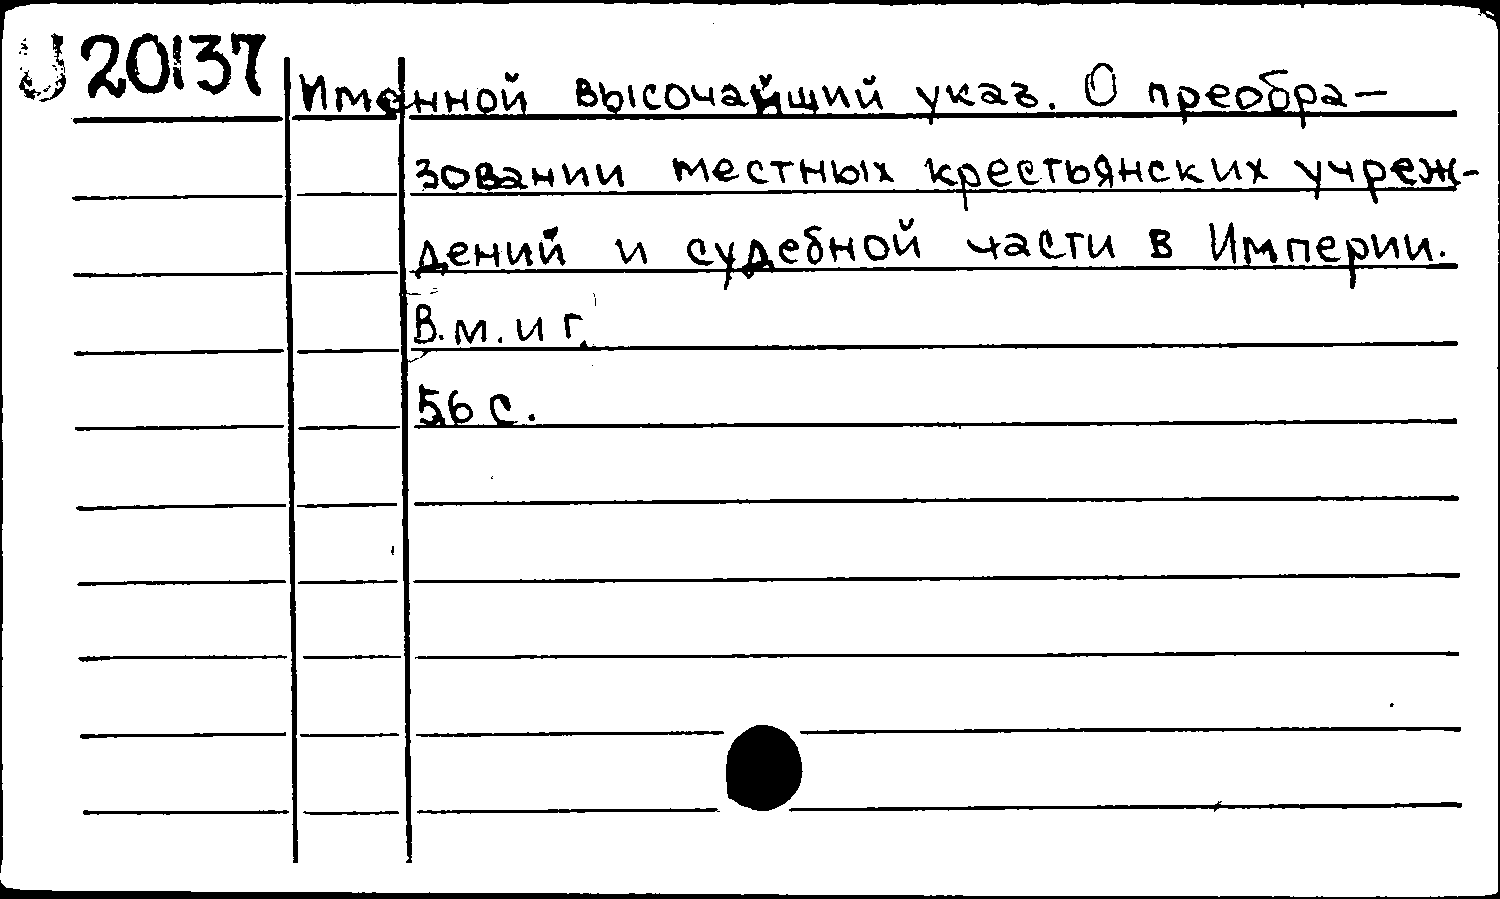 U 20137
Именной высочайший указ. О преобра-
зовании местных крестьянских учреж-
дений и судебной части в Империи.
В.м. и г.
56 с.